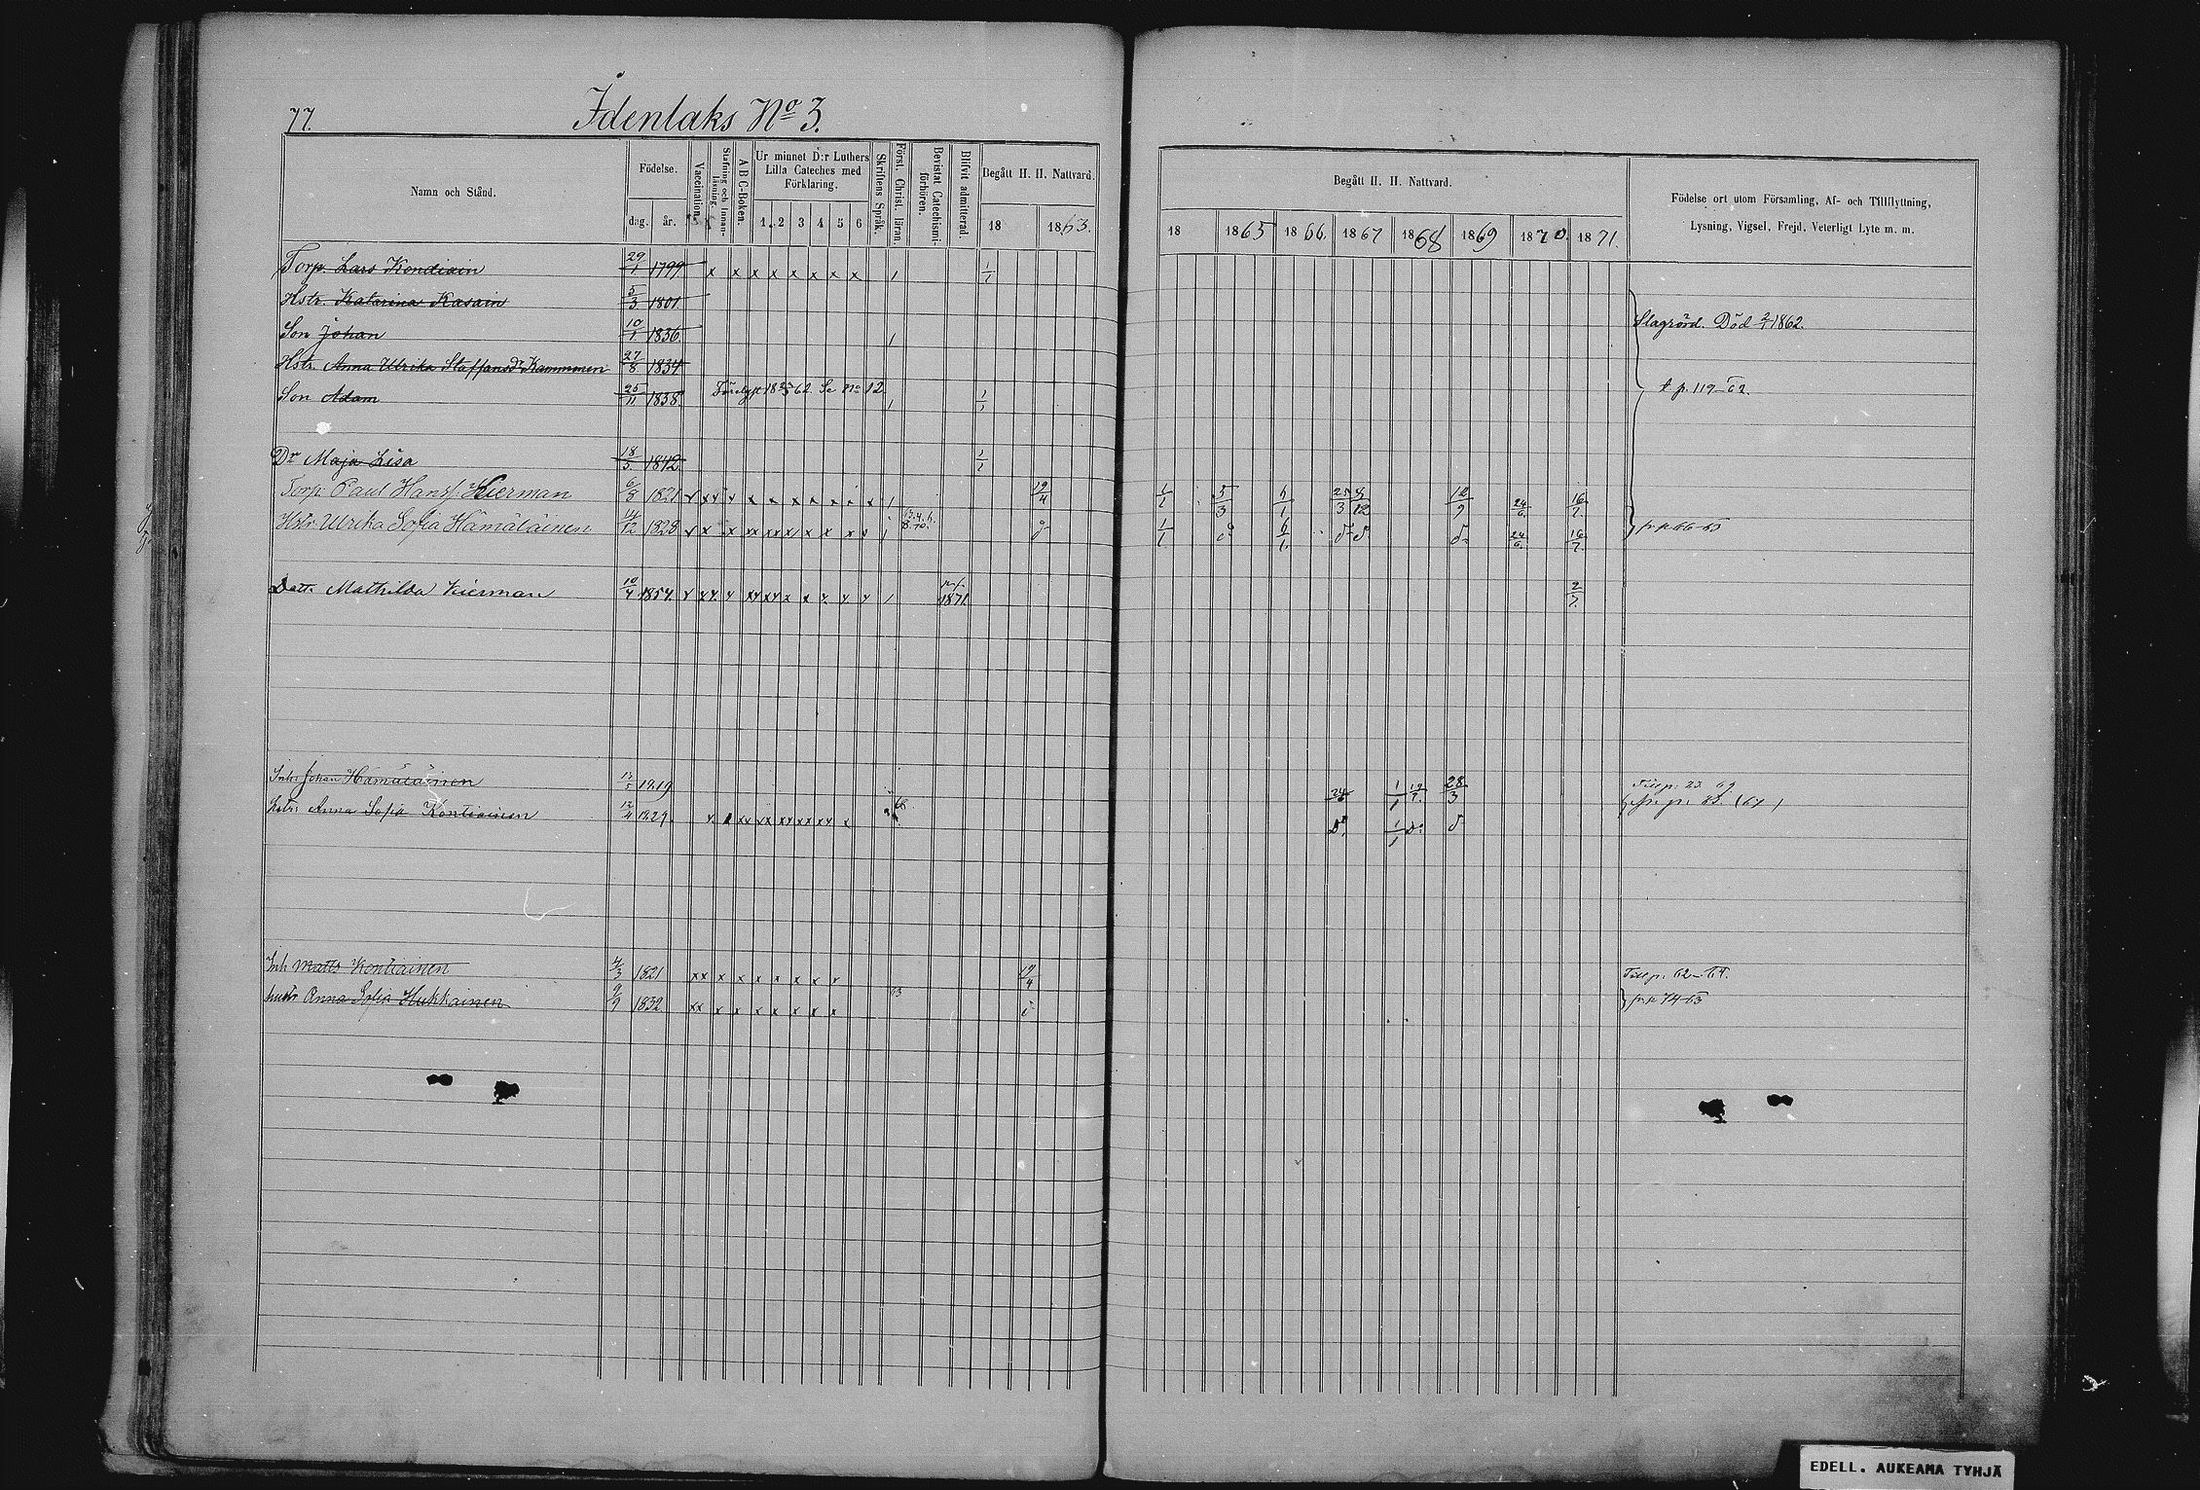 77.
Idenlaks No 3.
Namn och Stånd.
Födelse.
dag. år.
Vaccination.
Stafning och Innanläsning.
A B C-Boken.
Ur minnet D:r Luthers Lilla Cateches med Förklaring.
1. 2 3 4 5 6
Skriftens Språk.
Först. Christ. läran.
Bevistat Catechismiförhören.
Blifvit admitterad.
Begått H. H. Nattvard.
18 1863.
Begått H. H. Nattvard.
18 1865 1866. 1867 1868 1869 1870. 1871.
Födelse ort utom Församling, Af- och Tillflyttning,
Lysning, Vigsel, Frejd, Veterligt Lyte m. m.
Torp. Lars Kondiain 29/1 1799 x x x x x x x x 1 1/1
Hstr. Katarina Kasain 5/3 1801
Slagrörd. Död 2/1 1862.
Son Johan 10/1 1836 1
Hstr. Anna Ulrika Staffansdr Kammonen 27/8 1834
t. p. 119-62.
Son Adam 25/11 1838 62. Se No 12 1 1/1
Dr Maja Lisa 18/5. 1842 1/1
Torp. Paul Hansf. Kierman 6/8 1821 1 19/4 1/1 5/3 25/3 12/9 24/6. 16/7.
Hstr Ulrika Sofia Hämäläinen 14/12 1828 1/1 6/1. 24/6. 16/7.
fr p. 66-63
Dott. Mathilda Kierman 10/4 1854. 1 1871. 2/7.
Inh. Johan Hämäläinen 1819 1/1 28/3
Till p. 23 69
hstr. Anna Sofia Kontiainen 12/4 1829. 1/1 do
fr. p. 83. (67)
Inh Matts Kontiainen 4/3 1821 xx x x x x x x x 19/4
Till p. 62-64.
hustr Anna Sofia Hukkainen 9/9 1832 xx x x x x x x x 63
fr p 74-63
EDELL. AUKEAMA TYHJÄ